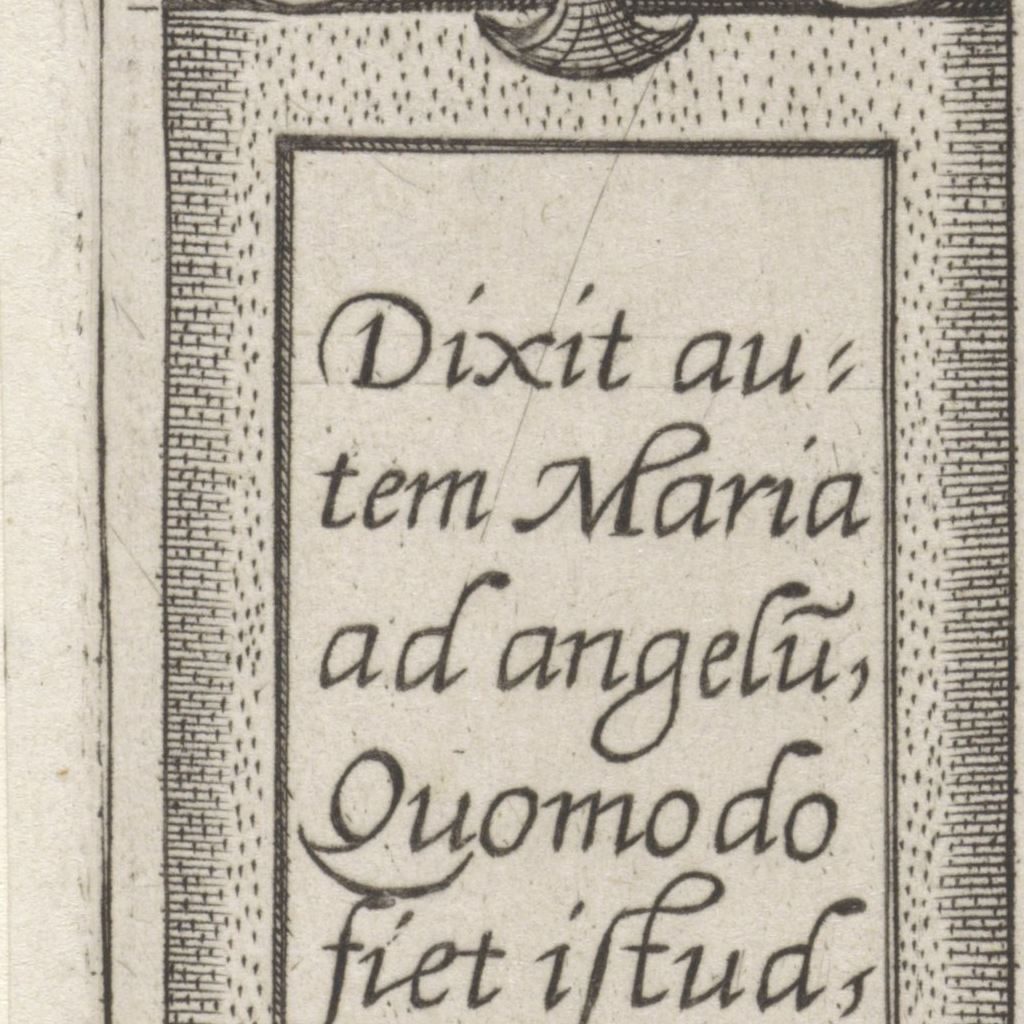 Dixit au-
tem Maria
ad angelũ,
Quomodo
fiet iſtud,